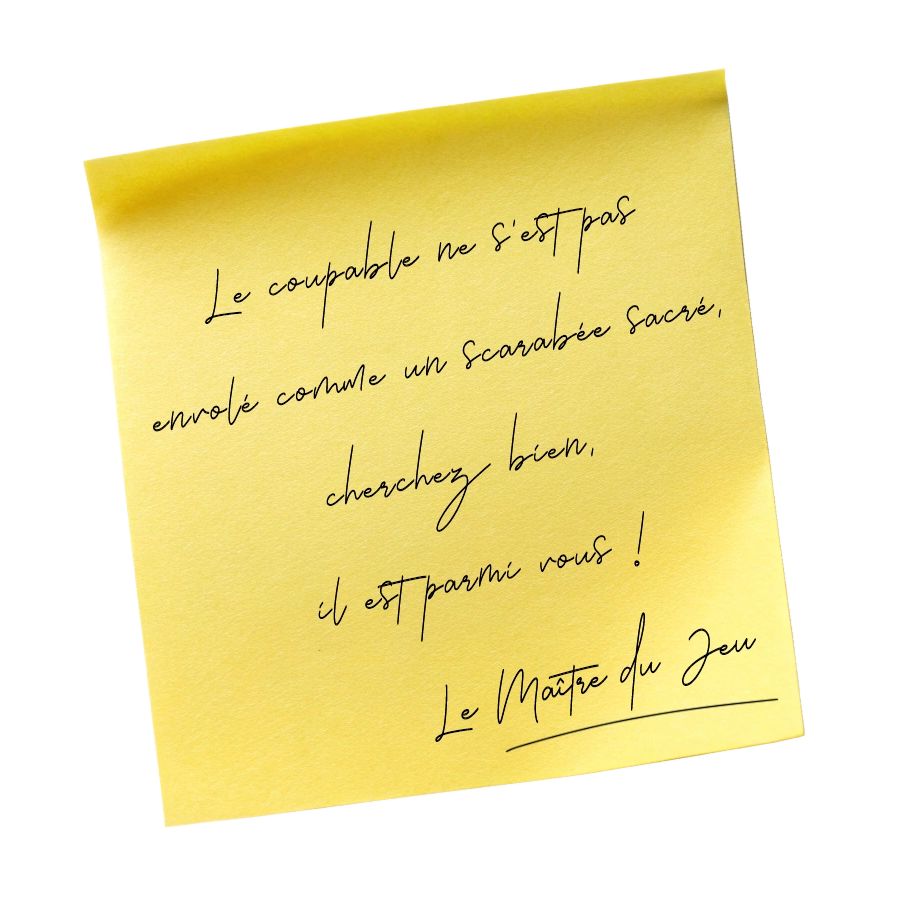 Le coupable ne s'est pas
envolé comme un scarabée sacré,
cherchez bien,
il est parmi vous !
Le Maître du Jeu